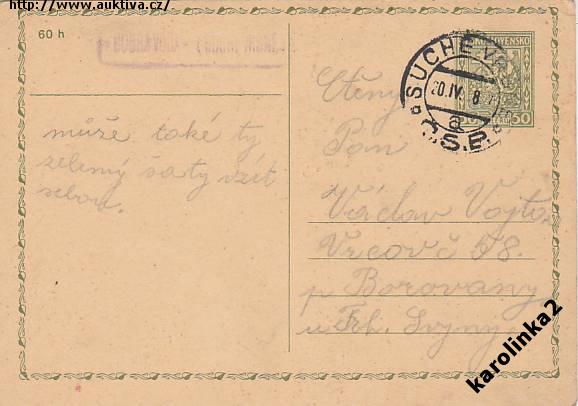 http://www.auktiva.cz/
60 h
může také ty
zelený šaty vzít
sebou.
SUCHÉ
20.IV. 8
a
Č.S.P.
50
Ctěný
Pan
Václav Vojta
Vrcov č 58.
p Borovany
u Trh. Svjny
karolinka2